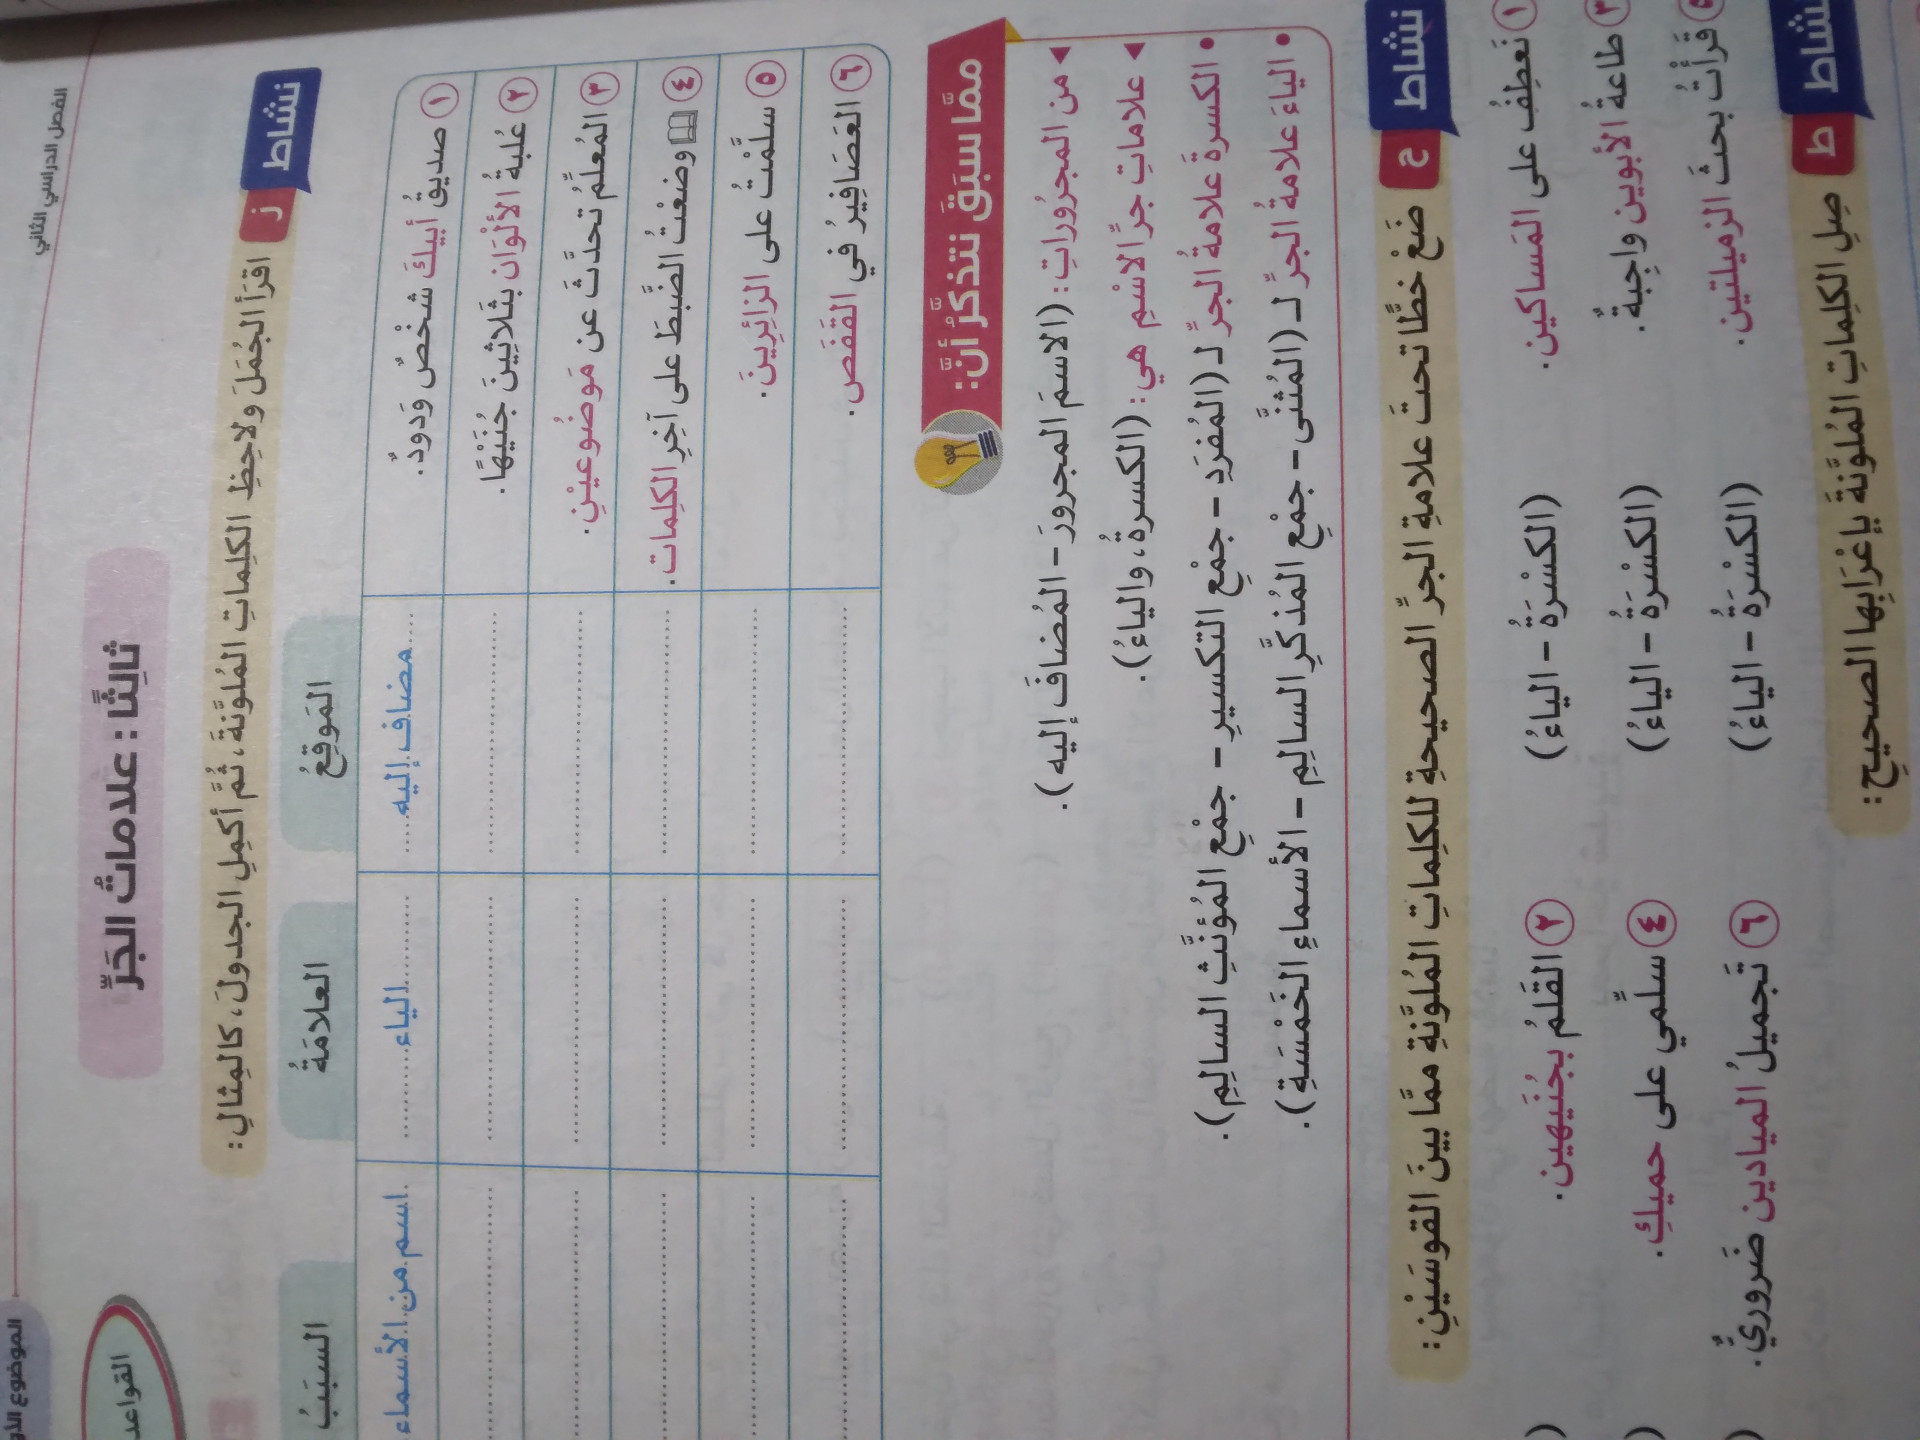 الفصل الدراسي الثاني
القواعد
ثالِثًا : علاماتُ الجَرِّ
نشاط ز اقرَأ الجُمَلَ ولاحِظِ الكَلِماتِ المُلوَّنةَ، ثُمَّ أكمِلِ الجدولَ، كالمِثالِ :
المَوقِعُ العلامَةُ السبَبُ
١ صديقُ أبيكَ شخْصٌ وَدودٌ. مضاف إليه الياء اسم من الأسماء
٢ عُلبةُ الأَلْوَان بثَلاثِينَ جُنَيْهًا.
٣ المُعلِّمُ تحدَّثَ عن مَوضُوعيْنِ.
٤ وضعْتُ الضَّبطَ على آخِرِ الكَلِمات.
٥ سلَّمْتُ على الزائِرِينَ.
٦ العَصَافِيرُ في القَفَص.
ممَّا سبَقَ نتذكَّرُ أنَّ:
◄ من المجرُوراتِ : (الاسمَ المجرورَ – المُضافَ إليه).
◄ علاماتِ جرِّ الاسْمِ هي : (الكسرةُ، والياءُ).
• الكسرةَ علامةُ الجرِّ لـ (المُفرَدِ – جمْعِ التكسيرِ – جمْعِ المُؤنَّثِ السالِمِ).
• الياءَ علامةُ الجرِّ لـ (المُثنَّى – جمْعِ المُذكَّرِ السالِمِ – الأسماءِ الخَمْسَةِ).
نشاط ح ضَعْ خطًّا تحتَ علامةِ الجرِّ الصحيحةِ للكَلِماتِ المُلوَّنةِ ممَّا بينَ القوسَيْنِ :
١ نَعَطِفُ على المَساكين. (الكسْرَةُ – الياءُ) ٢ القَلَمُ بجُنَيهين.
٣ طاعةُ الأبوين واجِبةٌ. (الكسْرَةُ – الياءُ) ٤ سلِّمي على حميكِ.
٥ قرأْتُ بحثَ الزميلتين. (الكسْرَةُ – الياءُ) ٦ تَجميلُ الميادين ضَروريٌّ.
نشاط ط صِلِ الكَلِماتِ المُلوَّنةَ بإعْرَابِها الصحيحِ :